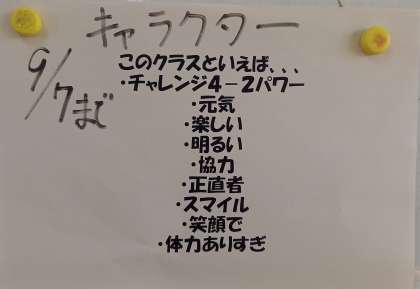 キャラクター
9/7まで
このクラスといえば、、、
・チャレンジ4-2パワー
・元気
・楽しい
・明るい
・協力
・正直者
・スマイル
・笑顔で
・体力ありすぎ